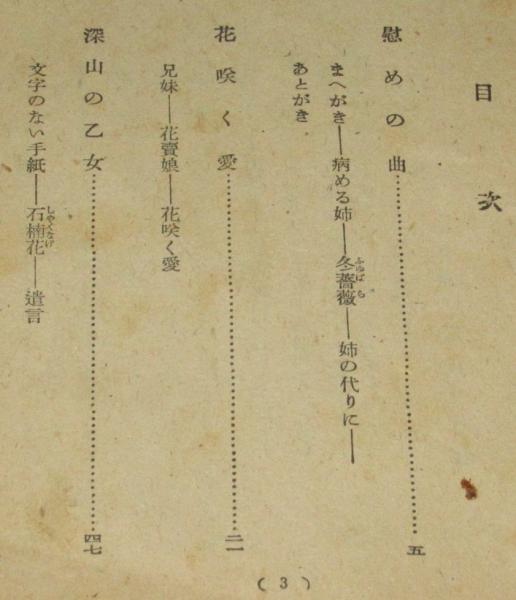 目次
慰めの曲……………………五
まへがき——病める姉——冬薔薇(ふゆばら)——姉の代りに——
あとがき
花咲く愛……………………二一
兄妹——花賣娘——花咲く愛
深山の乙女……………………四七
文字のない手紙——石楠花(しやくなげ)——遺言
(3)